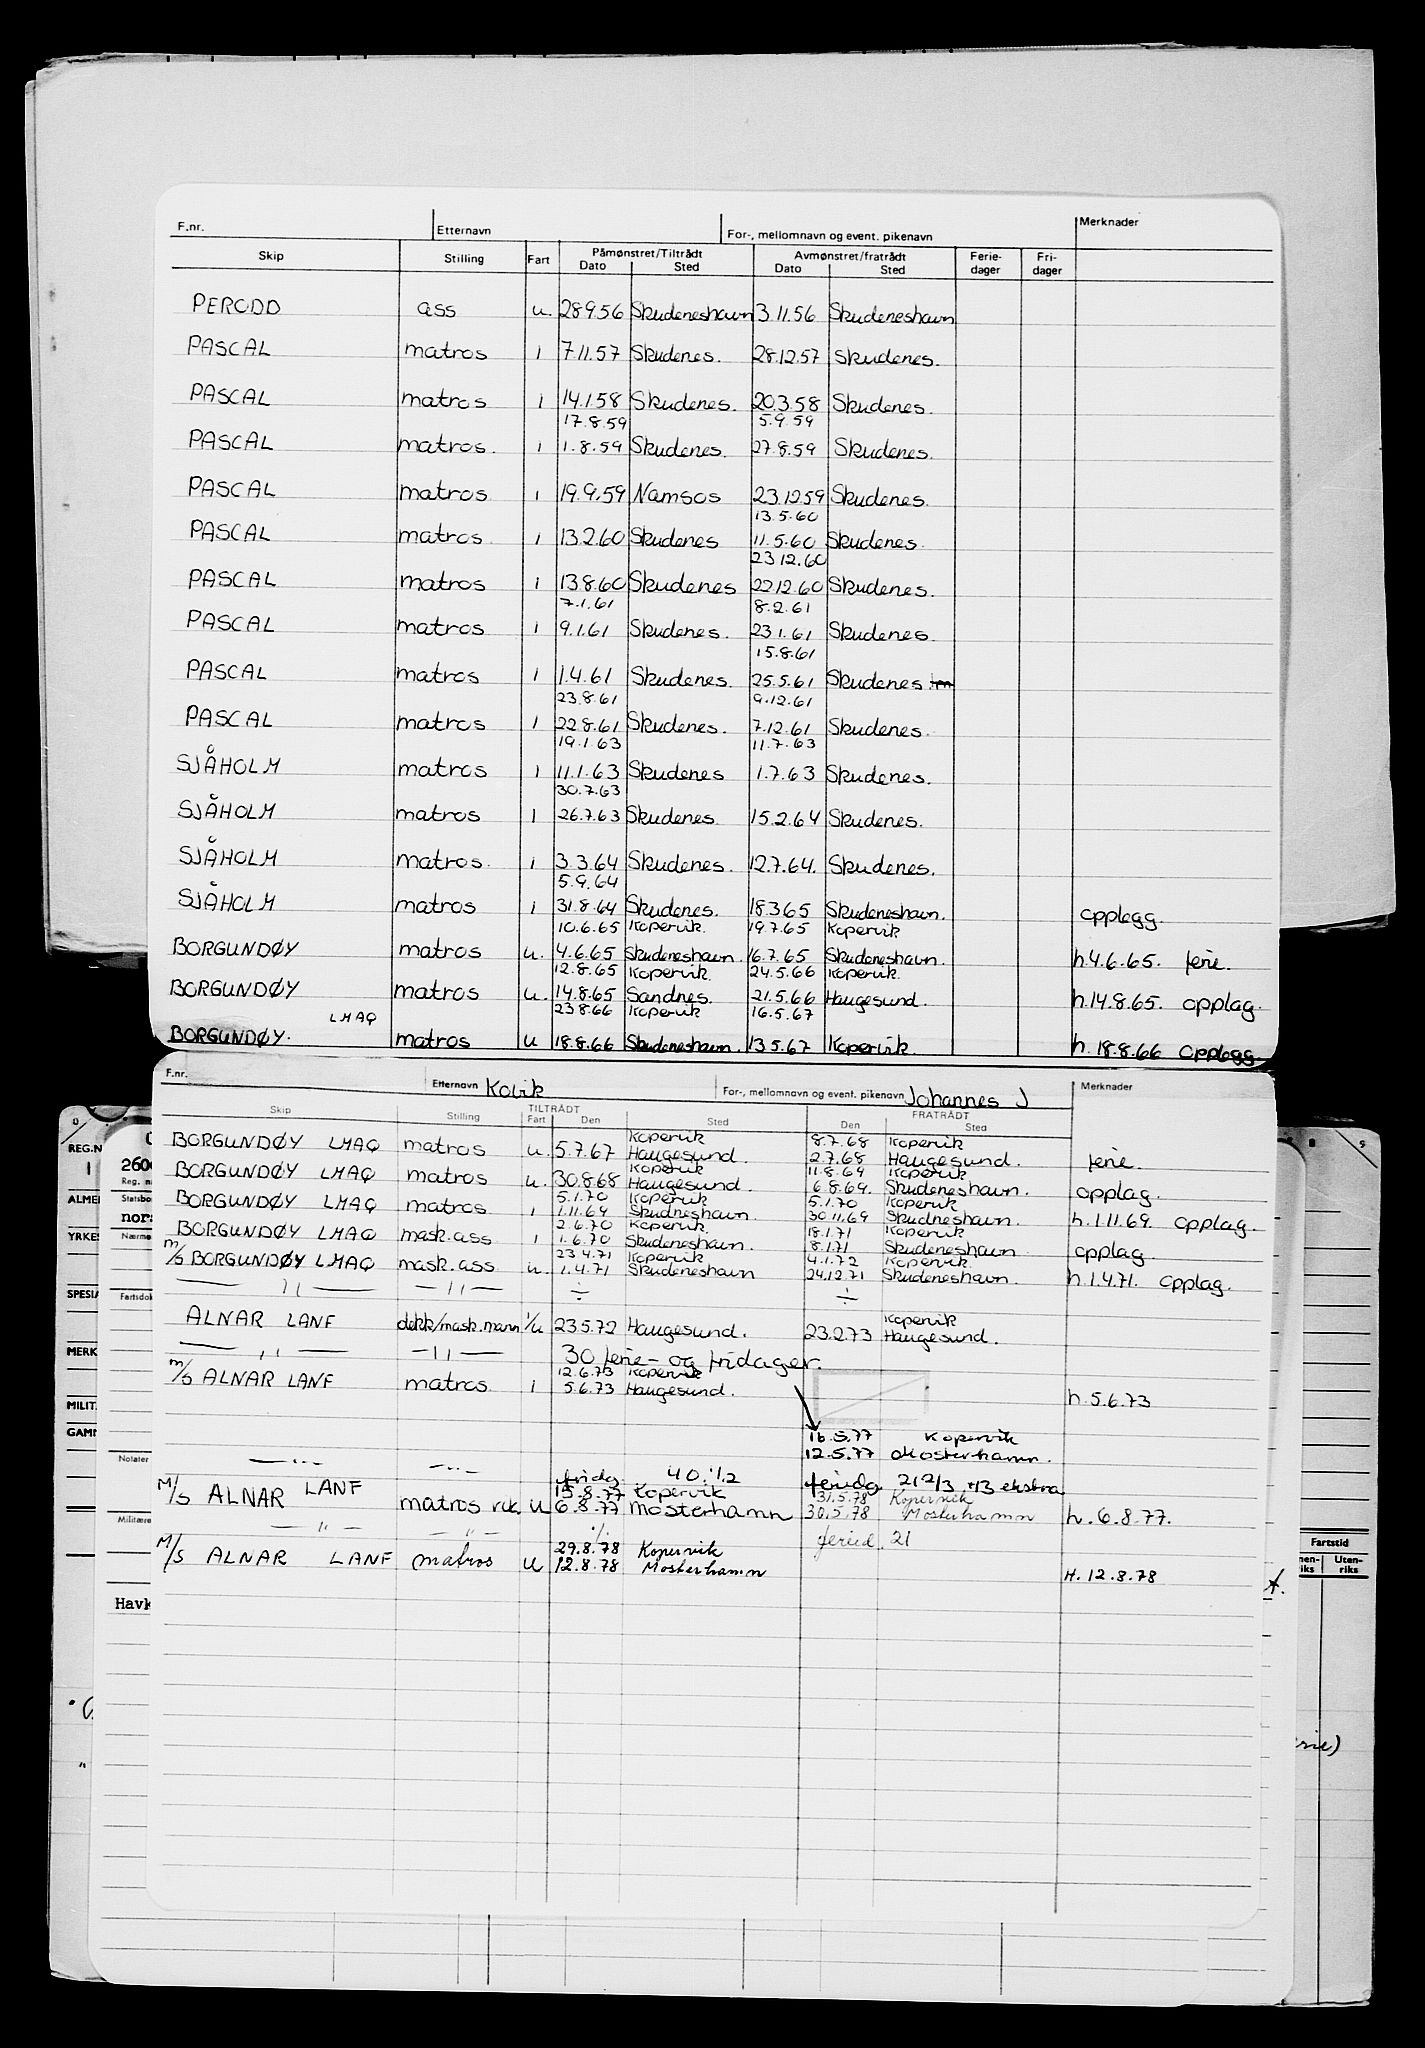 F.nr. Etternavn For-, mellomnavn og event. pikenavn Merknader
Skip Stilling Fart Påmønstret/Tiltrådt Avmønstret/fratrådt Ferie- Fri-
Dato Sted Dato Sted dager dager
PERODD ass u. 28.9.56 Skudeneshavn 3.11.56 Skudeneshavn
PASCAL matros i 7.11.57 Skudenes. 28.12.57 Skudenes.
PASCAL matros i 14.1.58 Skudenes. 20.3.58 Skudenes.
17.8.59 5.9.59
PASCAL matros. i 1.8.59 Skudenes. 27.8.59 Skudenes.
PASCAL matros i 19.9.59 Namsos 23.12.59 Skudenes.
13.5.60
PASCAL matros. i 13.2.60 Skudenes 11.5.60 Skudenes.
23.12.60
PASCAL matros i 13.8.60 Skudenes 22.12.60 Skudenes.
7.1.61 8.2.61
PASCAL matros i 9.1.61 Skudenes. 23.1.61 Skudenes.
15.8.61
PASCAL matros i 1.4.61 Skudenes. 25.5.61 Skudenes.
23.8.61 9.12.61
PASCAL matros i 22.8.61 Skudenes. 7.12.61 Skudenes.
19.1.63 11.7.63
SJÅHOLM matros i 11.1.63 Skudenes 1.7.63 Skudenes.
30.7.63
SJÅHOLM matros i 26.7.63 Skudenes. 15.2.64 Skudenes.
SJÅHOLM matros. i 3.3.64 Skudenes. 12.7.64. Skudenes.
5.9.64
SJÅHOLM matros i 31.8.64 Skudenes. 18.3.65 Skudeneshavn. opplegg.
10.6.65 Kopervik. 19.7.65 Kopervik
BORGUNDØY matros u. 4.6.65 Skudeneshavn. 16.7.65 Skudeneshavn. h.4.6.65. ferie.
12.8.65 Kopervik. 24.5.66 Kopervik.
BORGUNDØY matros u. 14.8.65 Sandnes. 21.5.66 Haugesund. h.14.8.65. opplag.
23.8.66 Kopervik 16.5.67
LMAQ
BORGUNDØY. matros u 18.8.66 Skudeneshavn. 13.5.67 Kopervik. h.18.8.66 opplegg.
F.nr. Etternavn Kolvik For-, mellomnavn og event. pikenavn Johannes J Merknader
Skip Stilling TILTRÅDT FRATRÅDT
Fart Den Sted Den Sted
Kopervik 8.7.68 Kopervik
BORGUNDØY LMAQ matros u. 5.7.67 Haugesund. 2.7.68 Haugesund. ferie.
Kopervik 11.8.69 Kopervik
BORGUNDØY LMAQ matros u. 30.8.68 Haugesund. 6.8.69. Skudeneshavn. opplag.
5.1.70 Kopervik 5.1.70 Kopervik
BORGUNDØY LMAQ matros. i 1.11.69 Skudneshavn 30.11.69 Skudneshavn. h.1.11.69. opplag.
2.6.70 Kopervik. 18.1.71 Kopervik
BORGUNDØY LMAQ mask.ass i 1.6.70 Skudeneshavn. 8.1.71 Skudeneshavn opplag.
23.4.71 Kopervik 4.1.72 Kopervik.
m/s BORGUNDØY LMAQ mask.ass. u. 1.4.71 Skudeneshavn 24.12.71 Skudeneshavn. h.1.4.71. opplag.
— " — — " — ÷ ÷
Kopervik
ALNAR LANF dekk/mask.mann i/u 23.5.72 Haugesund. 23.2.73 Haugesund.
— " — — " — 30 ferie- og fridager.
12.6.73 Kopervik
m/s ALNAR LANF matros. i 5.6.73 Haugesund. h.5.6.73
16.5.77 Kopervik
12.5.77 Mosterhamn.
— " — — " — fridg. 40.1/2 feriedg. 21 2/3 +13 ekstra
15.8.77 Kopervik 31.5.78 Kopervik
M/S ALNAR LANF matros u 6.8.77 Mosterhamn 30.5.78 Mosterhamn h. 6.8.77.
— " — — " — feried. 21
29.8.78 Kopervik
M/S ALNAR LANF matros u 12.8.78 Mosterhamn H. 12.8.78
REG.N
ALMEI
YRKES
SPESIA
MERK
MILIT.
GAMM
Reg. n
Statsbo
nors
Nærme
Fartsdok
Notater
Militære
Havk
Fartstid
Uten-
riks